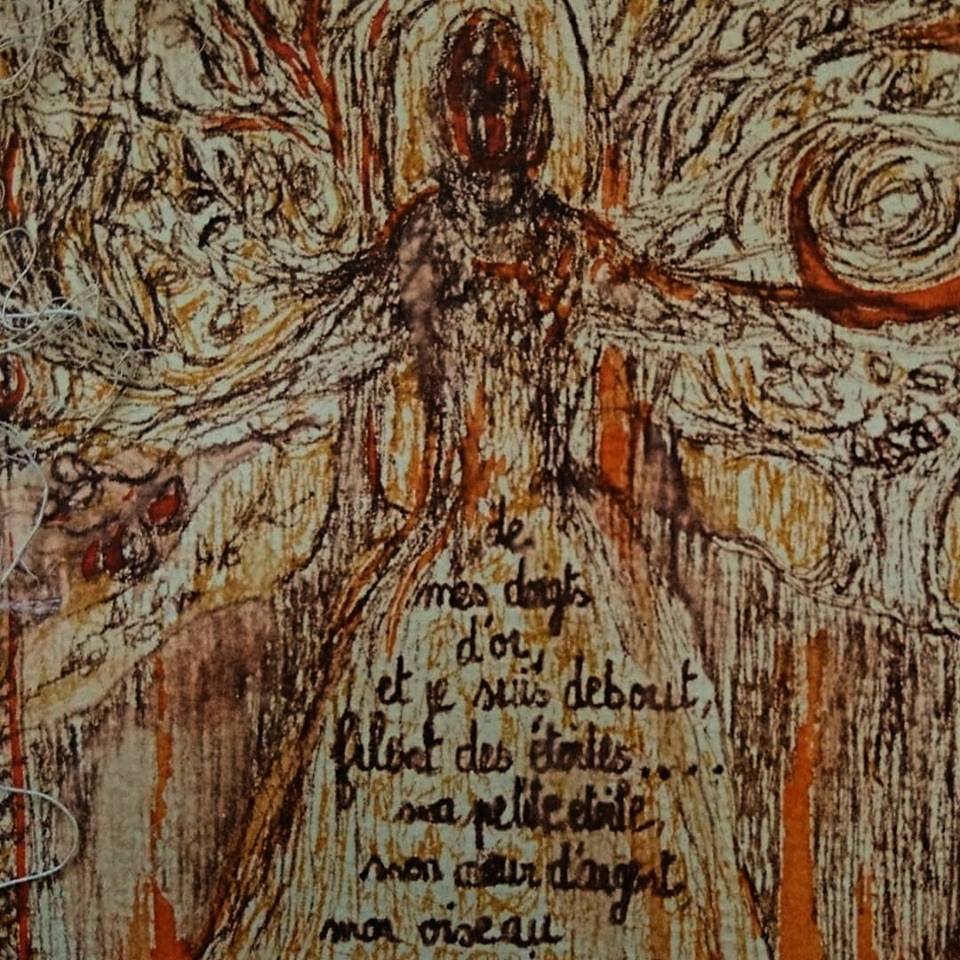 de
mes doigts
d'or,
et je suis debout,
filant des étoiles.....
ma petite etoile,
mon cœur d'argent,
mon oiseau